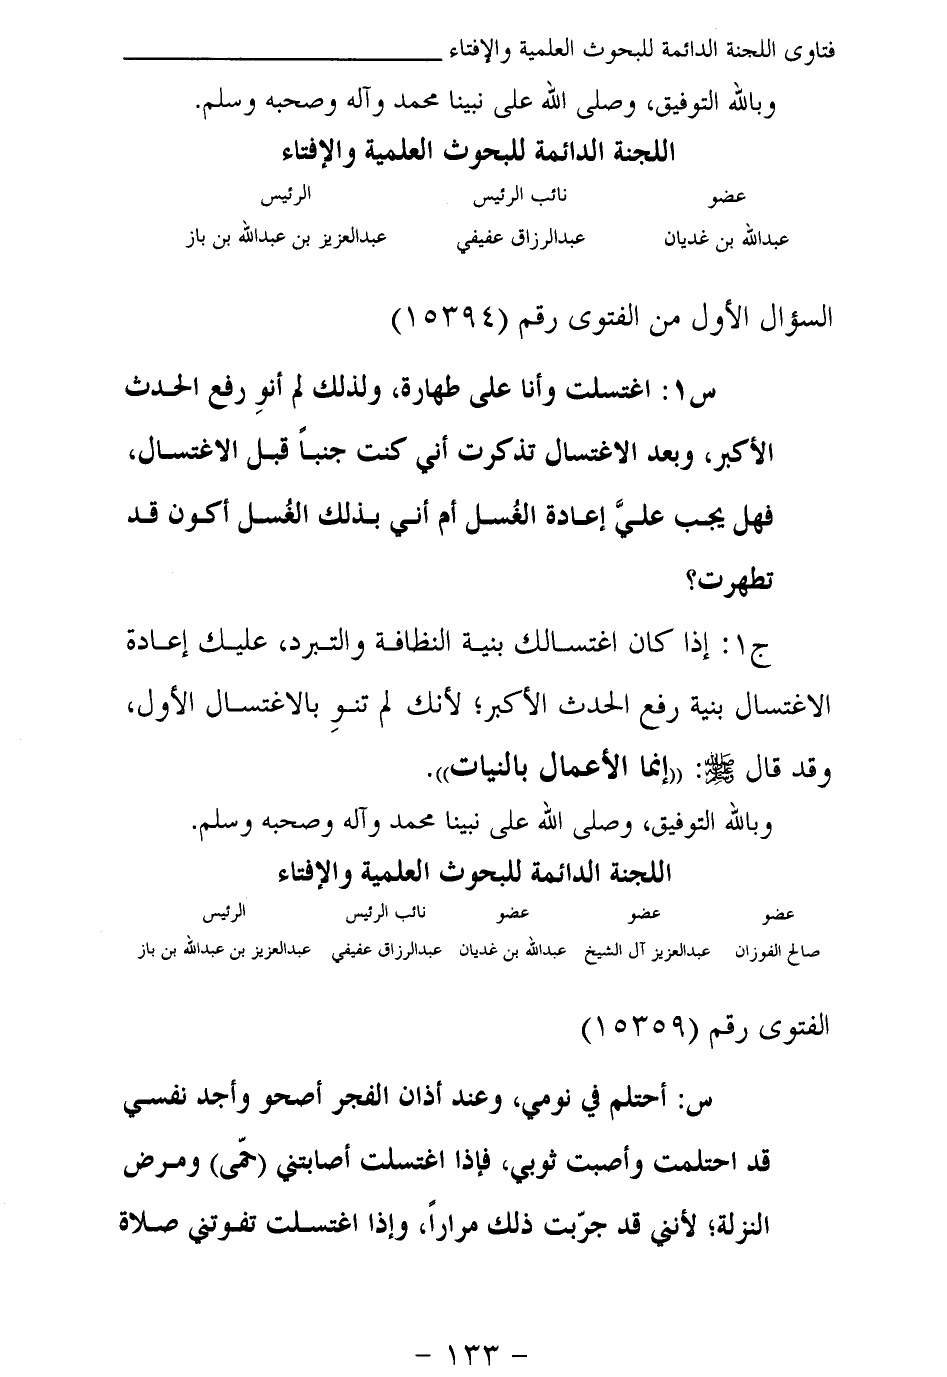 فتاوى اللجنة الدائمة للبحوث العلمية والإفتاء
وبالله التوفيق، وصلى الله على نبينا محمد وآله وصحبه وسلم.
اللجنة الدائمة للبحوث العلمية والإفتاء
عضو نائب الرئيس الرئيس
عبدالله بن غديان عبدالرزاق عفيفي عبدالعزيز بن عبدالله بن باز
السؤال الأول من الفتوى رقم (١٥٣٩٤)
س١: اغتسلت وأنا على طهارة، ولذلك لم أنوِ رفع الحدث
الأكبر، وبعد الاغتسال تذكرت أني كنت جنباً قبل الاغتسال،
فهل يجب عليَّ إعادة الغُسل أم أني بذلك الغُسل أكون قد
تطهرت؟
ج١: إذا كان اغتسالك بنية النظافة والتبرد، عليك إعادة
الاغتسال بنية رفع الحدث الأكبر؛ لأنك لم تنوِ بالاغتسال الأول،
وقد قال ﷺ: ((إنما الأعمال بالنيات)).
وبالله التوفيق، وصلى الله على نبينا محمد وآله وصحبه وسلم.
اللجنة الدائمة للبحوث العلمية والإفتاء
عضو عضو عضو نائب الرئيس الرئيس
صالح الفوزان عبدالعزيز آل الشيخ عبدالله بن غديان عبدالرزاق عفيفي عبدالعزيز بن عبدالله بن باز
الفتوى رقم (١٥٣٥٩)
س: أحتلم في نومي، وعند أذان الفجر أصحو وأجد نفسي
قد احتلمت وأصبت ثوبي، فإذا اغتسلت أصابتني (حمّى) ومرض
النزلة؛ لأنني قد جرّبت ذلك مراراً، وإذا اغتسلت تفوتني صلاة
- ١٣٣ -